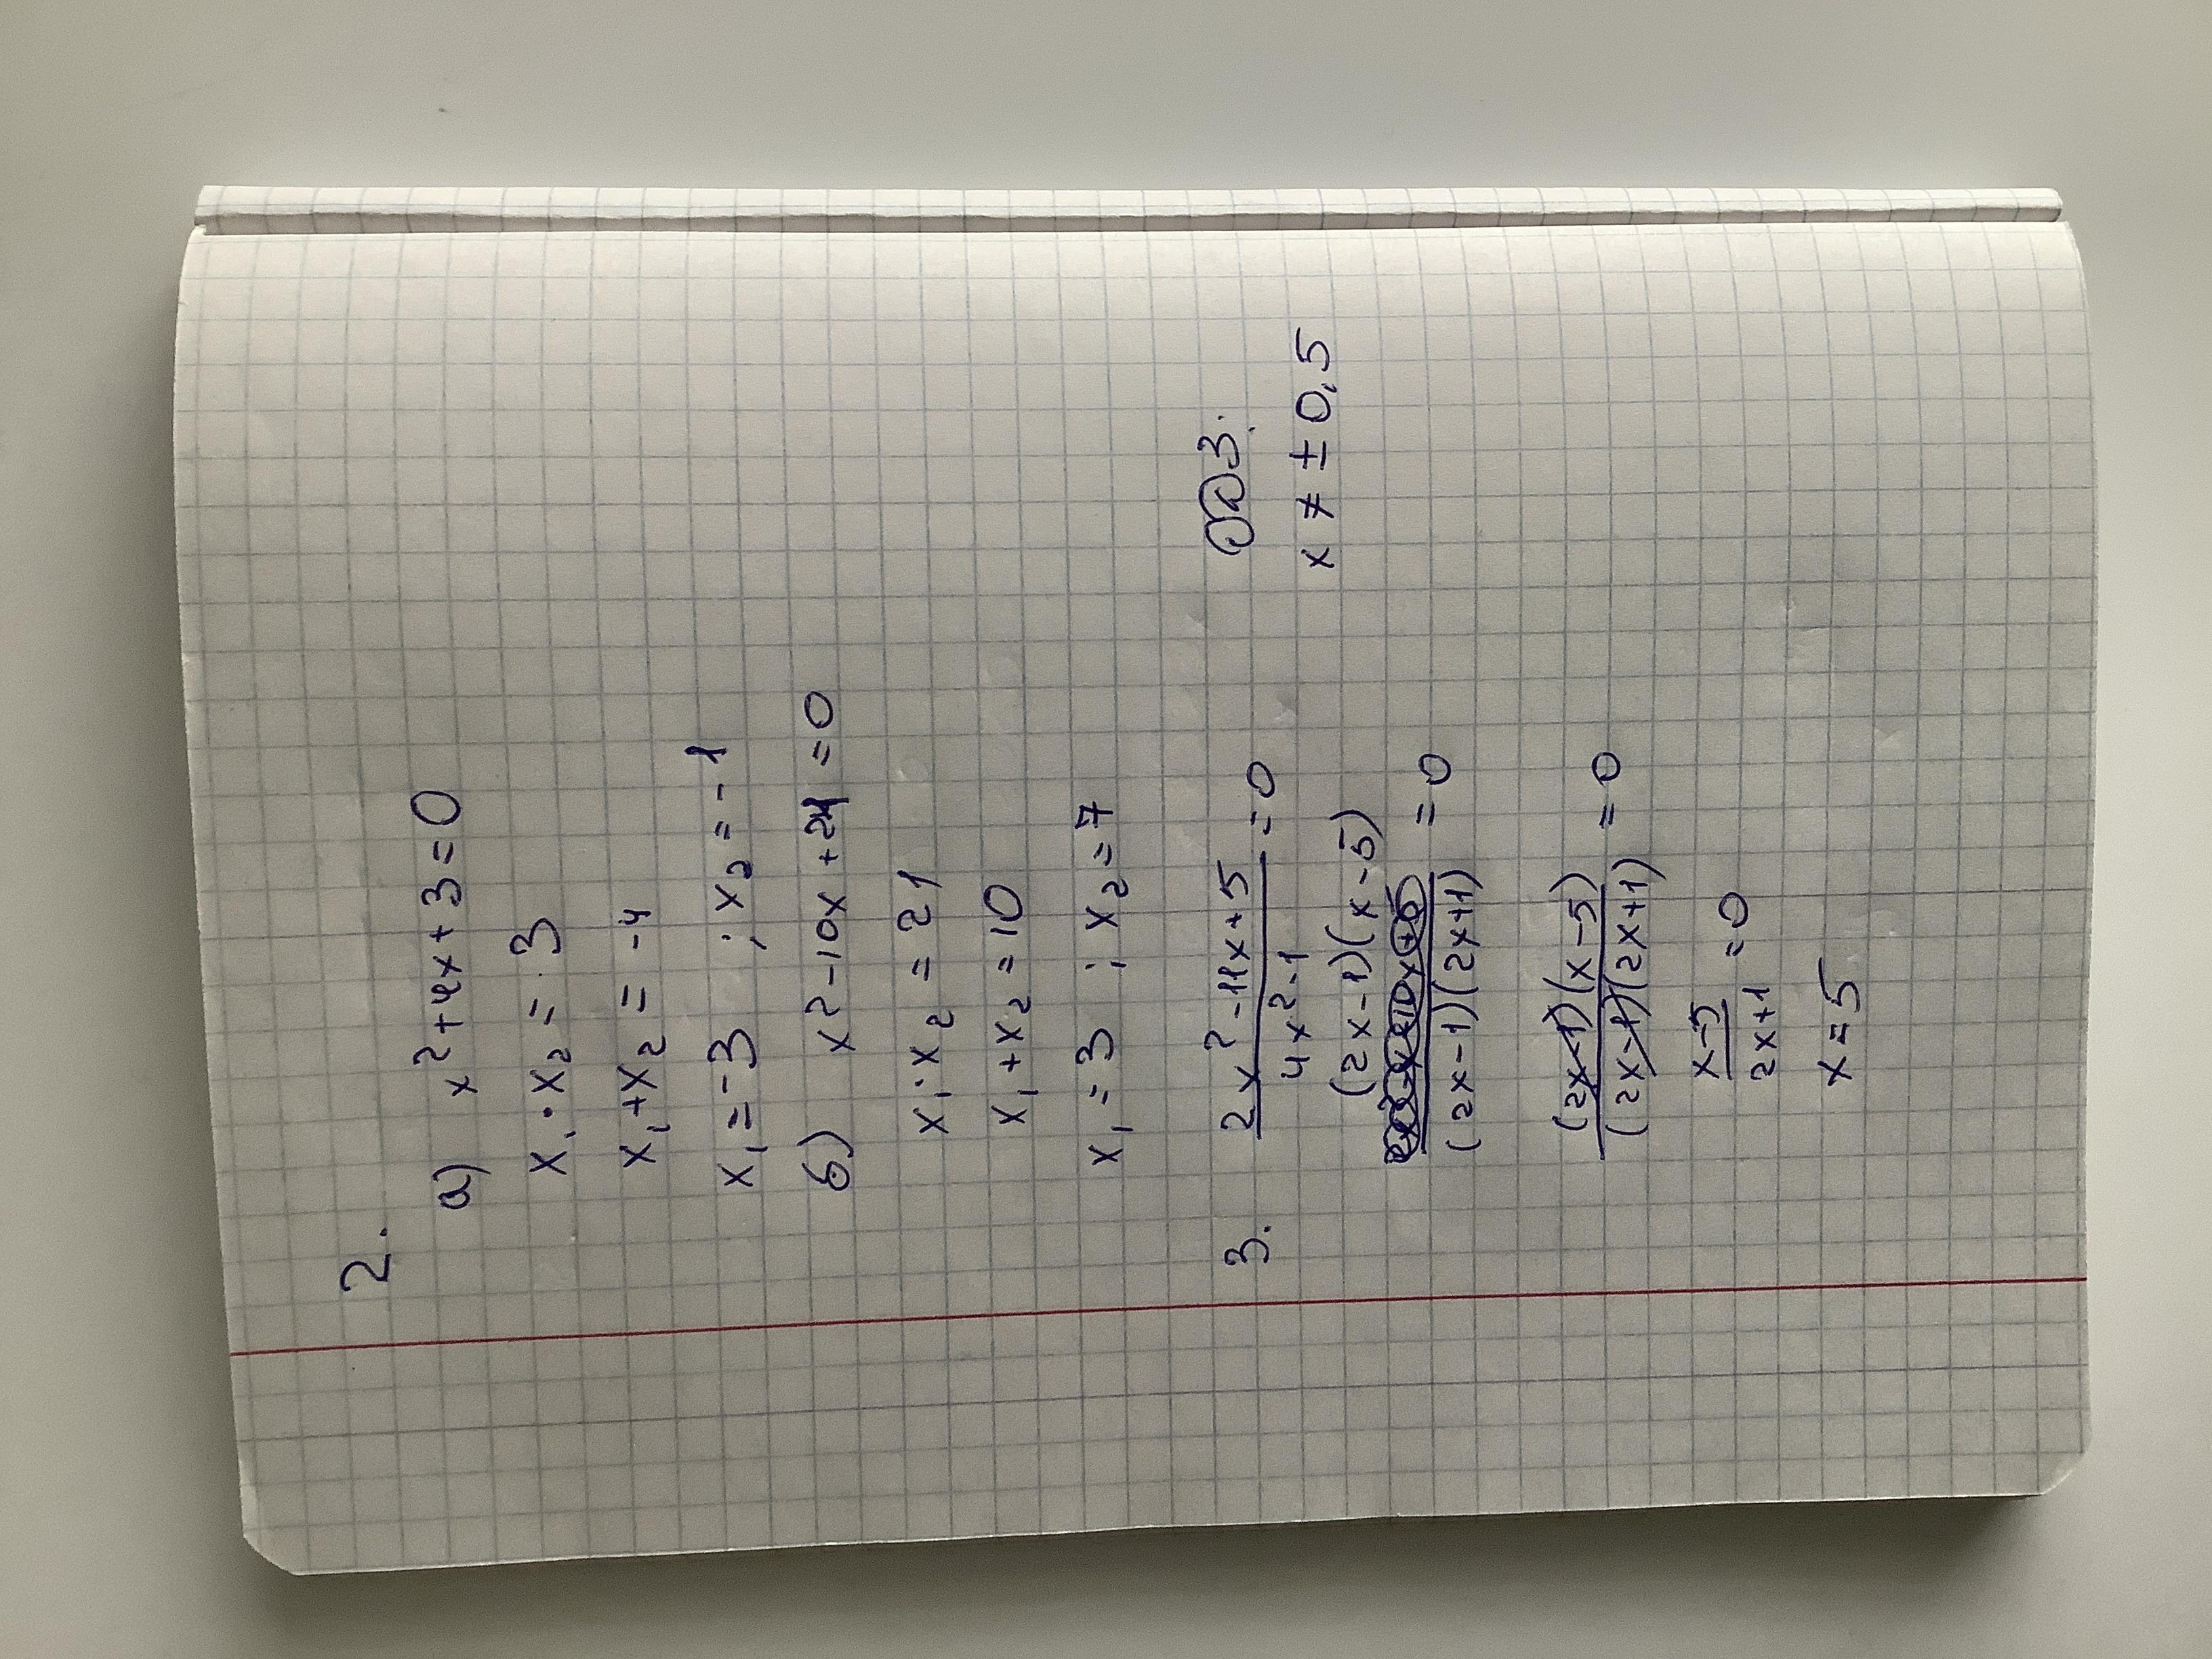 2.
а) x²+4x+3=0
x₁•x₂=3
x₁+x₂=-4
x₁=-3 ; x₂=-1
б) x²-10x+21=0
x₁·x₂=21
x₁+x₂=10
x₁=3 ; x₂=7
3. (2x²-11x+5)/(4x²-1)=0
ОДЗ.
x≠±0,5
((2x-1)(x-5))/((2x-1)(2x+1))=0
((2x-1)(x-5))/((2x-1)(2x+1))=0
(x-5)/(2x+1)=0
x=5